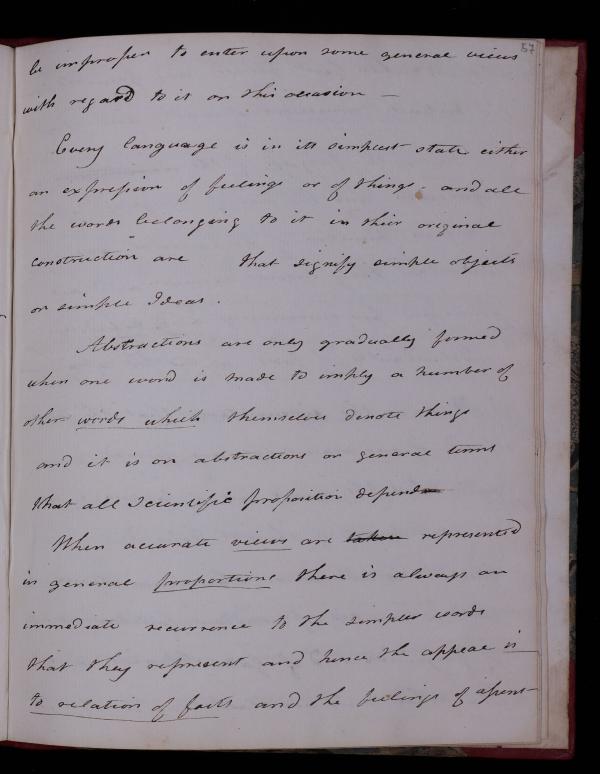 57
be improper to enter upon some general views
with regard to it on this occasion —
Every language is in its simplest state either
an expression of feelings or of things. and all
the words belonging to it in their original
construction are that signify simple objects
or simple Ideas.
Abstractions are only gradually formed
when one word is made to imply a number of
other words which themselves denote things
and it is on abstractions or general terms
that all Scientific proposition depend
When accurate views are taken represented
in general proportions there is always an
immediate recurrence to the simpler words
that they represent and hence the appeal is
to relation of facts and the feelings of